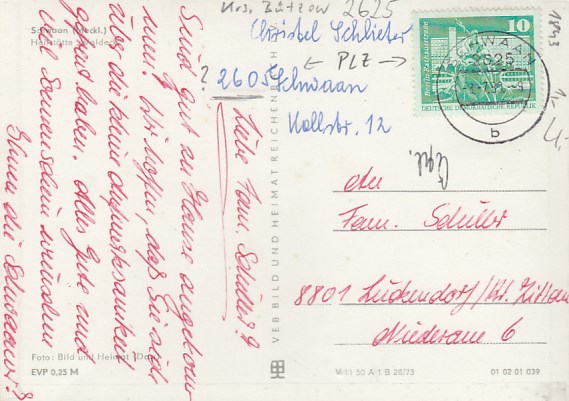 Krs. Bützow 2625
Christel Schlieter
← PLZ →
? 2605 Schwaan
Kollstr. 12
Schwaan (Meckl.)
Heilstätte Waldeck
Liebe Fam. Schüler!
Sind gut zu Hause angekom-
men! Wir hoffen, daß Sie sich
über die kleine Aufmerksamkeit
gefreut haben. Alles Gute und
viel Sonnenschein wünschen
Ihnen die Schwaaner!
VEB BILD UND HEIMAT REICHENBACH
10
DEUTSCHE DEMOKRATISCHE REPUBLIK
SCHWAAN
2625
b
18843
An
Fam. Schüler
8801 Lückendorf/Kr. Zittau
Niederaue 6
Foto: Bild und Heimat
EVP 0,25 M
V 11 50 A 1 B 28/73
01 02 01 039